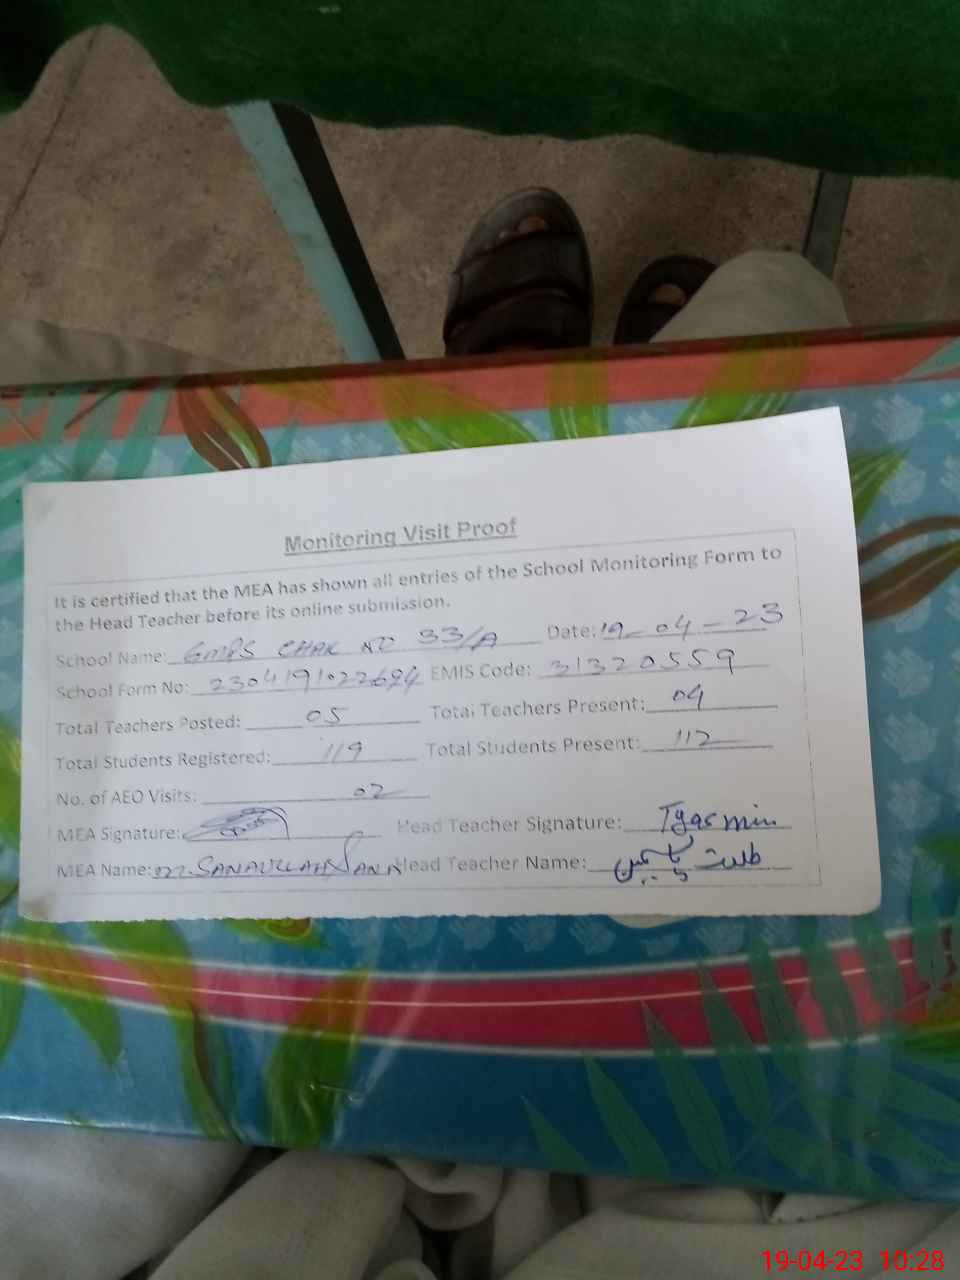 Monitoring Visit Proof
It is certified that the MEA has shown all entries of the School Monitoring Form to
the Head Teacher before its online submission.
School Name: GMPS CHAK NO 33/A Date: 19-04-23
School Form No: 2304191022694 EMIS Code: 31320559
Total Teachers Posted: 05 Total Teachers Present: 04
Total Students Registered: 119 Total Students Present: 112
No. of AEO Visits: 02
MEA Signature: Head Teacher Signature: Tyasmin
MEA Name: SANAULLAH SANA Head Teacher Name: طلعت یاسمین
19-04-23 10:28